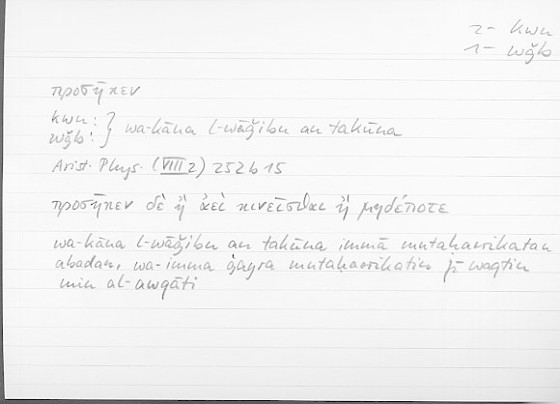 2- kwn
1- wǧb
προσῆκεν
kwn: } wa-kāna l-wāǧibu an takūna
wǧb:
Arist. Phys. (VIII 2) 252 b 15
προσῆκεν δὲ ἢ ἀεὶ κινεῖσθαι ἢ μηδέποτε
wa-kāna l-wāǧibu an takūna immā mutaḥarrikatan
abadan, wa-imma ġayra mutaḥarrikatin fī waqtin
min al-awqāti